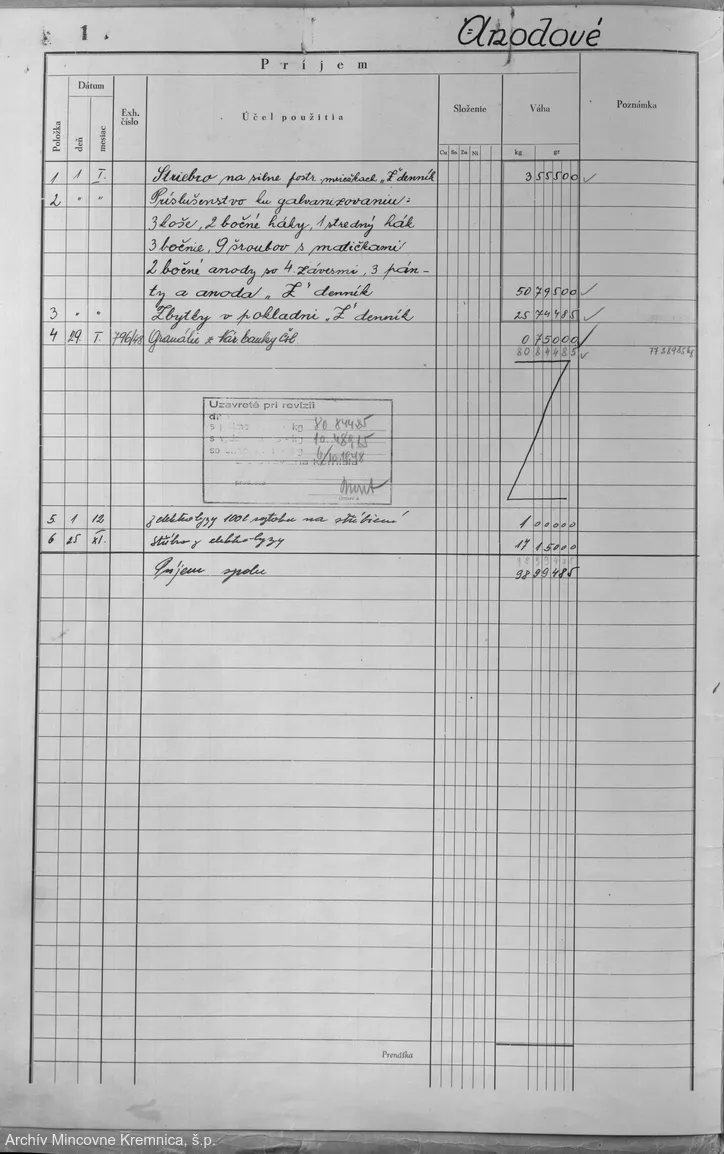 1.
Anodové
Príjem
Položka
Dátum
deň
mesiac
Exh. číslo
Účel použitia
Složenie
Cu Sn Zn Nj
Váha
kg gr
Poznámka
1 1 I. Striebro na silne postr. mriežkach „Ž" denník 3 555 00
2 " " Príslušenstvo ku galvanizovaniu:
3 koše, 2 bočné háky, 1 stredný hák
3 bočnie, 9 šroubov s matičkami
2 bočné anody so 4 závesmi, 3 pán-
ty a anoda „Ž" denník 50 79500
3 " " Zbytky v pokladni „Ž" denník 25 74485
4 29. I. 796/48 Granálie z Nár. banky Čsl 0 75000
80 84485
Uzavreté pri revízii
kg 80.84485
kg 10.48965
5 1 12 z elektrolyzy 100 l roztoku na stříbření 1 00000
6 25 XI. stříbro z elektrolyzy 17 15000
Príjem spolu 98 99485
Prenáška
Archív Mincovne Kremnica, š.p.